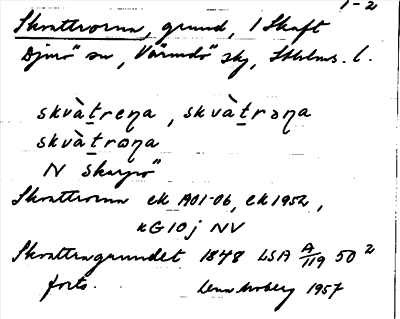 1-2
Skvattrorna, grund, 1 Skaft
Djurö sn, Värmdö skg, Sthlms. l.
skvàt̲rena, skvàt̲rəna
skvàt̲rəna
N Skarpö
Skvattrorna ek 1901-06, ek 1952,
kG10j NV
Skvattragrundet 1848 LSA A/119 50²
forts. Lena Moberg 1957